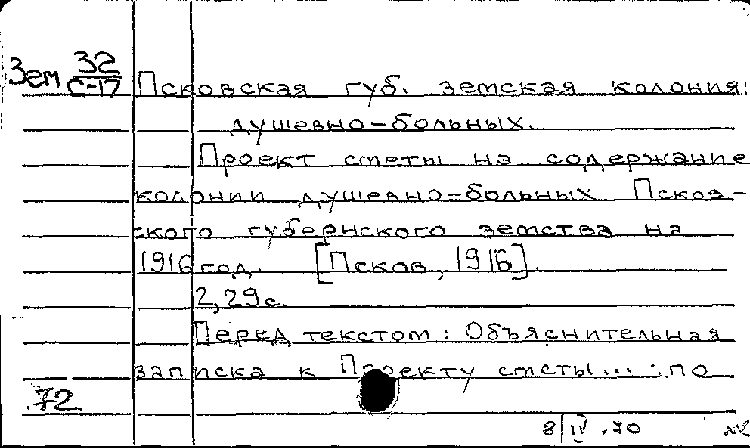 Зем 32
С-17
Псковская губ. земская колония
душевно-больных.
Проект сметы на содержание
колонии душевно-больных Псков-
ского губернского земства на
1916 год. [Псков, 1916].
2,29с.
Перед текстом: Объяснительная
записка к Проекту сметы... : по
72
8/IV.70